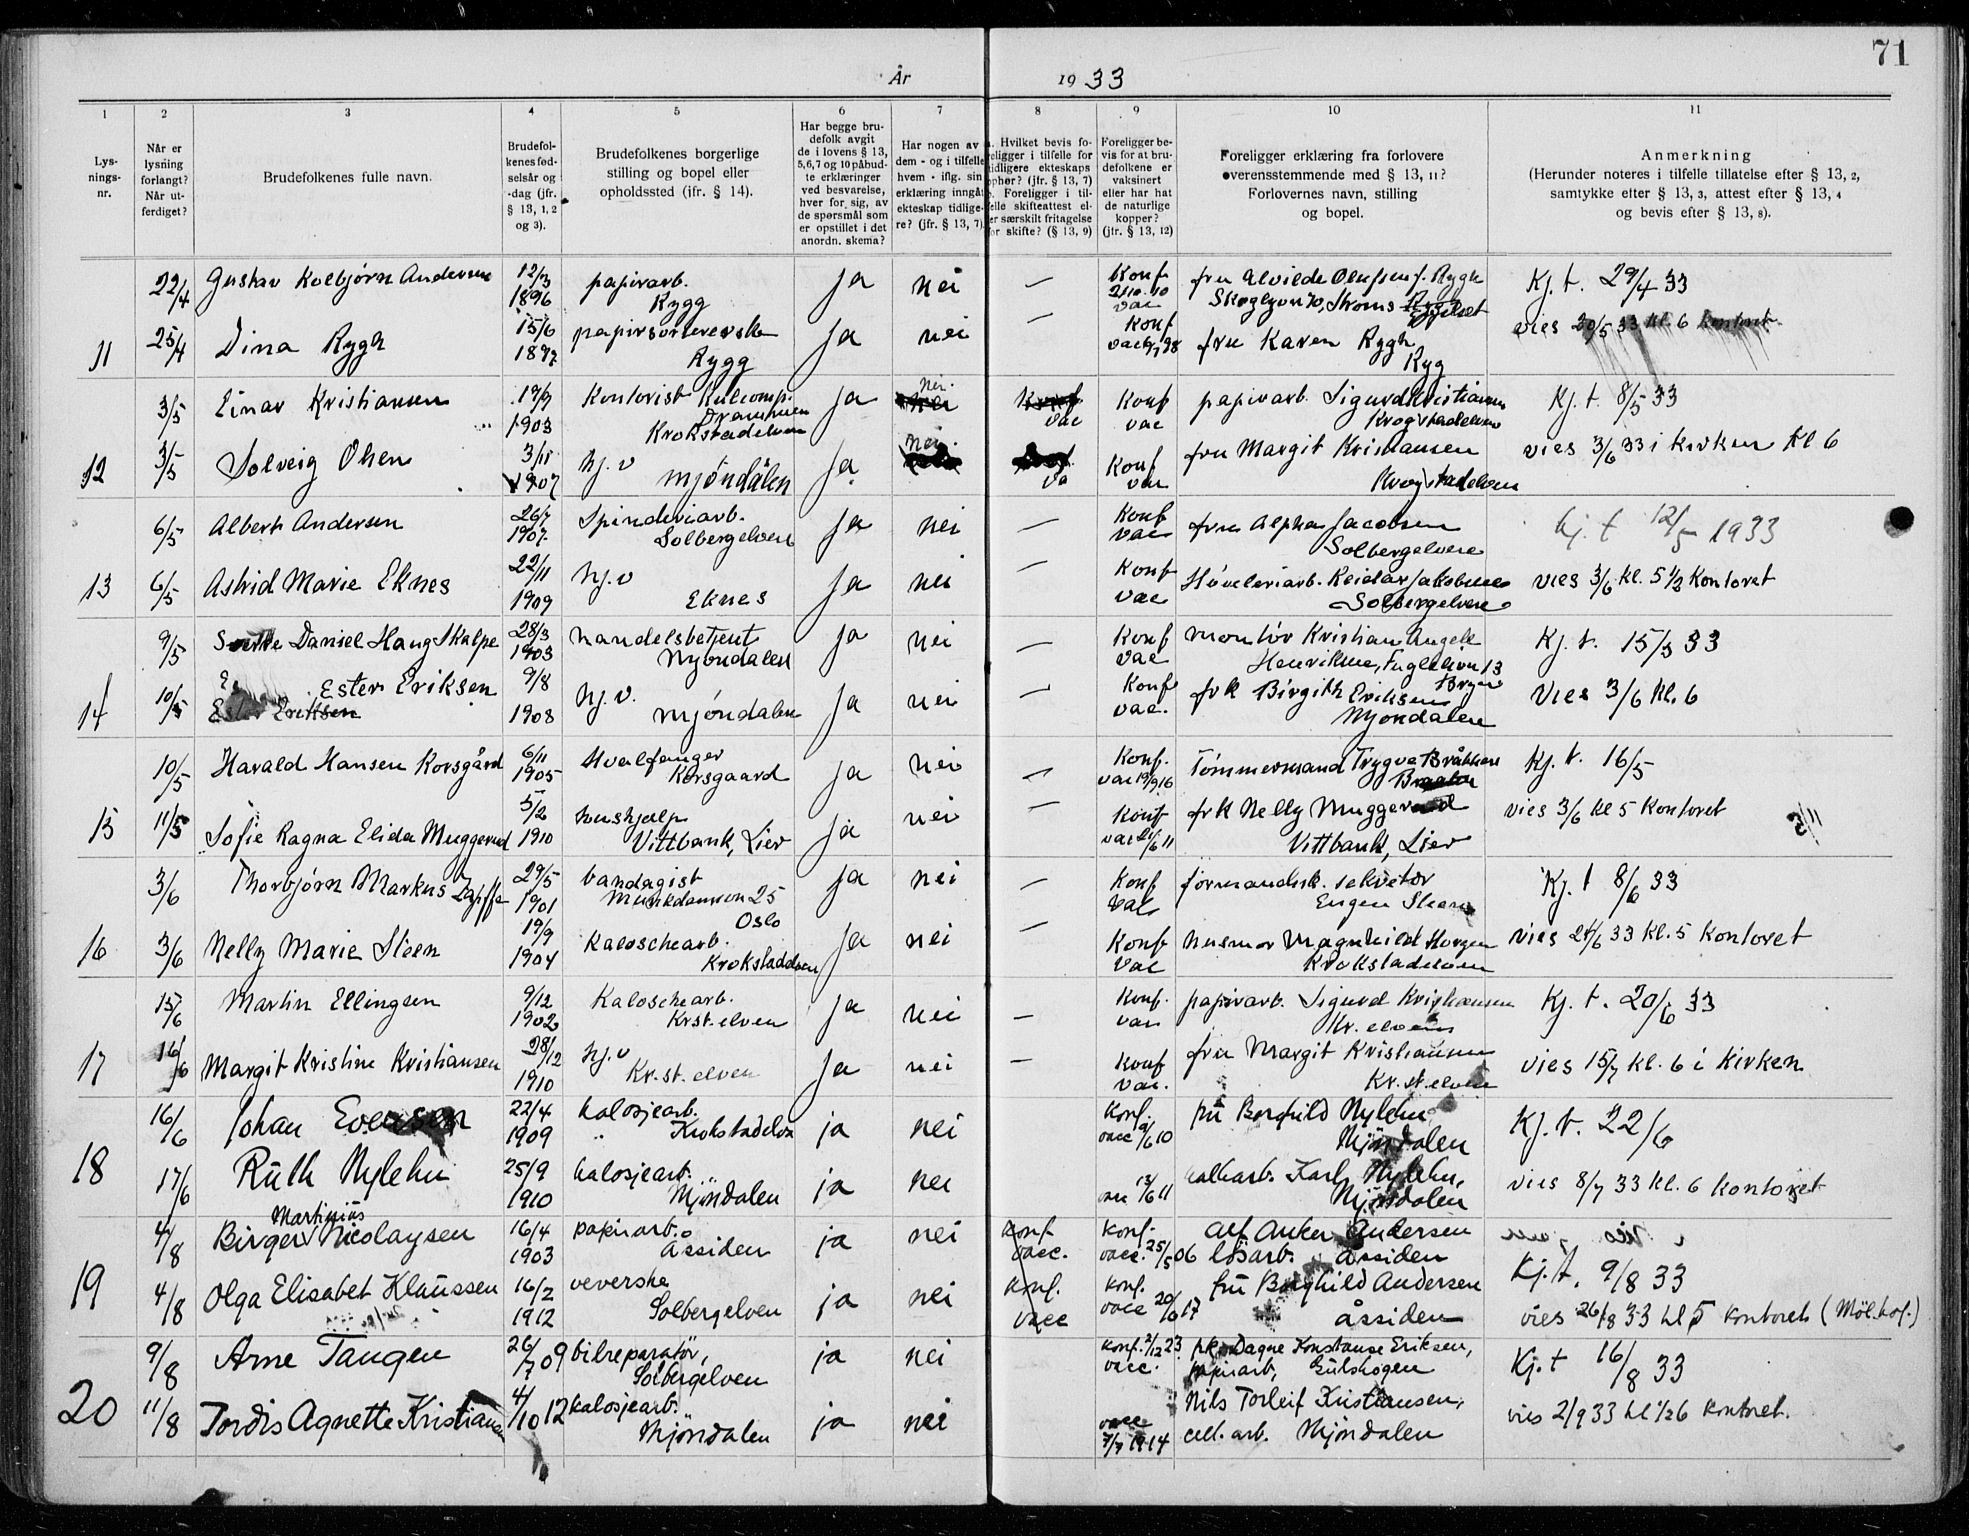 71
År 1933
1 2 3 4 5 6 7 8 9 10 11
Lys-
nings-
nr.
Når er
lysning
forlangt?
Når ut-
ferdiget?
Brudefolkenes fulle navn.
Brudefol-
kenes fød-
selsår og
-dag (jfr.
§ 13, 1, 2
og 3).
Brudefolkenes borgerlige
stilling og bopel eller
opholdssted (ifr. § 14).
Har begge bru-
defolk avgit
de i lovens § 13,
5,6,7 og 10 påbud-
te erklæringer
ved besvarelse,
hver for sig, av
de spørsmål som
er opstillet i det
anordn. skema?
Har nogen av
dem - og i tilfelle
hvem - iflg. sin
erklæring inngåt
ekteskap tidlige-
re? (jfr. § 13, 7)
a. Hvilket bevis fo-
religger i tilfelle for
tidligere ekteskaps
ophør? (jfr. § 13, 7)
b. Foreligger i til-
felle skifteattest el-
ler særskilt fritagelse
for skifte? (§ 13, 9)
Foreligger be-
vis for at bru-
defolkene er
vaksinert
eller har hat
de naturlige
kopper?
(jfr. § 13, 12)
Foreligger erklæring fra forlovere
overensstemmende med § 13, 11?
Forlovernes navn, stilling
og bopel.
Anmerkning
(Herunder noteres i tilfelle tillatelse efter § 13, 2,
samtykke efter § 13, 3, attest efter § 13, 4
og bevis efter § 13, 8).
22/4 Gustav Kolbjørn Andersen 12/3 1896 papirarb. Rygg ja nei — Konf 2/10.10 vac fru Alvilde Olufsen f. Rygh Skoglyvn 70, Strøms Kj. t. 29/4 33
11 25/4 Dina Rygh 15/6 1897 papirsortererske Rygg ja nei — Konf vac 98 fru Karen Rygh Ryg vies 20/5 33 kl. 6 kontoret
3/5 Einar Kristiansen 19/9 1903 Kontorist Kulcomp. Drammen Krokstadelven ja nei. vac Konf vac papirarb. Sigurd Kristiansen Krogstadelven Kj. t. 8/5 33
12 3/5 Solveig Olsen 3/11 1907 hj. v Mjøndalen ja nei. va Konf vac fru Margit Kristiansen Krogstadelven vies 3/6 33 i kirken kl 6
6/5 Albert Andersen 26/7 1907. Spinderiarb. Solbergelven ja nei — Konf vac fru Alpha Jacobsen Solbergelven kj. t 12/5 1933
13 6/5 Astrid Marie Eknes 22/11 1909 hj. v Eknes ja nei — Konf vac Høveleriarb. Reidar Jakobsen Solbergelven vies 3/6 kl. 5 1/2 Kontoret
9/5 Sverre Daniel Haug Skalpe 28/3 1903 handelsbetjent Mjøndalen ja nei — Konf vac montør Kristian Angell Henriksen, Fuglehaugn 13 Bryn Kj. t. 15/5 33
14 10/5 Ester Eriksen Ester Eriksen 9/8 1908 hj. v. Mjøndalen ja nei — Konf vac. frk Birgith Eriksen Mjøndalen Vies 3/6 kl. 6
10/5 Harald Hansen Korsgård 6/11 1905 Hvalfanger Korsgaard ja nei — Konf. vac 19/9 16 Tømmermand Trygve Bråthen Kj. t. 16/5
15 11/5 Sofie Ragna Elida Muggerud 5/2 1910 hushjælp Vittbank, Lier ja nei — Konf vac 21/6 11 frk Nelly Muggerud Vittbank, Lier vies 3/6 kl 5 Kontoret
3/6 Thorbjørn Markus Zapffe 29/5 1901 bandagist Munkdamsvn 25 Oslo ja nei — Konf vac formandsk. sekretær Eugen Steen Kj. t 8/6 33
16 3/6 Nelly Marie Steen 19/9 1904 Kaloschearb. Krokstadelven ja nei — Konf vac husmor Magnhild Horgen Krokstadelven vies 24/6 33 kl. 5 Kontoret
15/6 Martin Ellingsen 9/12 1902 Kaloschearb. Krst. elven ja nei — Konf. vac papirarb. Sigurd Kristiansen Kr. elven Kj. t. 20/6 33
17 16/6 Margit Kristine Kristiansen 28/12 1910 hj. v Kr. st. elven ja nei — Konf vac. fru Margit Kristiansen Kr. st. elven vies 15/7 kl. 6 i Kirken
16/6 Johan Evensen 22/4 1909 kalosjearb. Krokstadelva ja nei Konf. vacc 9/6 10 frú Borghild Nylehn Mjøndalen Kj. t. 22/6
18 17/6 Ruth Nylehn 25/9 1910 kalosjearb. Mjøndalen ja nei vac 13/6 11 Karl Nylehn, Mjøndalen vies 8/7 33 kl. 6 kontoret
4/8 Birger Martinius Nicolaysen 16/4 1903 papirarb. Åssiden ja nei konf. vacc. konf. vacc. 25/5 06 Alf Anker Andersen løsarb. Åssiden
19 4/8 Olga Elisabet Klaussen 16/2 1912 veverske Solbergelven ja nei konf. vacc konf. vacc 20/6 17 frú Borghild Andersen Åssiden Kj. t. 9/8 33 vies 26/8 33 kl 5 kontoret (Møl.hof.)
9/8 Arne Tangen 26/7 09 bilreparatør, Solbergelven ja nei konf. 2/12 23 vacc. frk Dagne Konstanse Eriksen, papirarb, Gulskogen Kj. t 16/8 33
20 11/8 Tordis Agnette Kristiansen 4/10 12 kalosjearb. Mjøndalen ja nei vacc 7/7 1914 Nils Torleif Kristiansen, cell. arb. Mjøndalen vies 2/9 33 kl 1/2 6 kontoret.